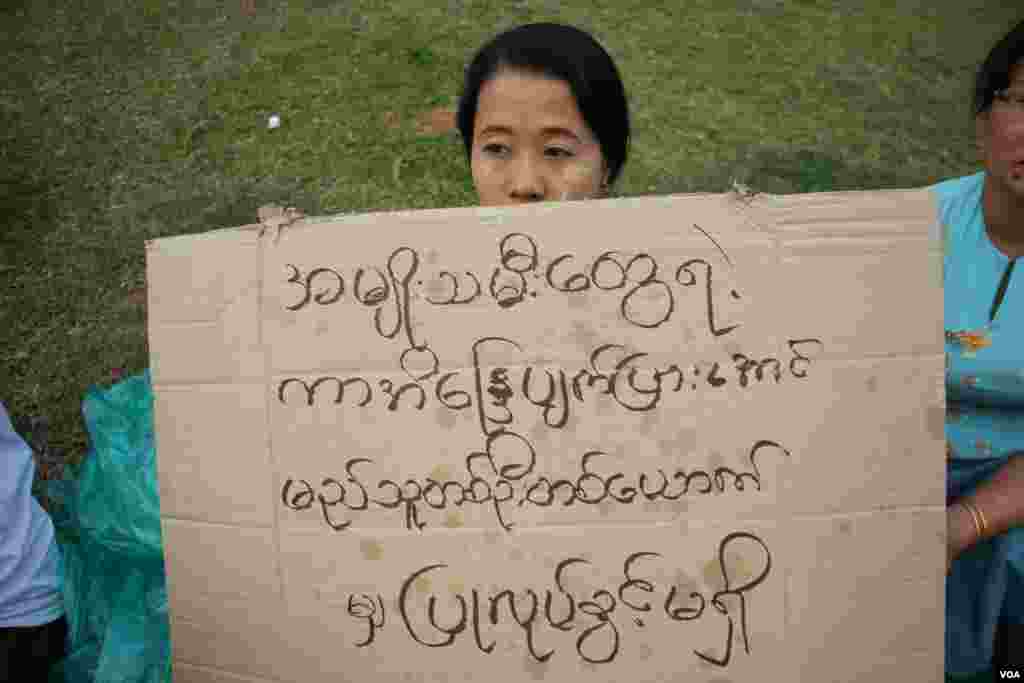 အမျိုးသမီးတွေရဲ့
ကာအိန္ဒြေပျက်ပြားအောင်
မည်သူတစ်ဦးတစ်ယောက်
မှ ပြုလုပ်ခွင့်မရှိ
VOA